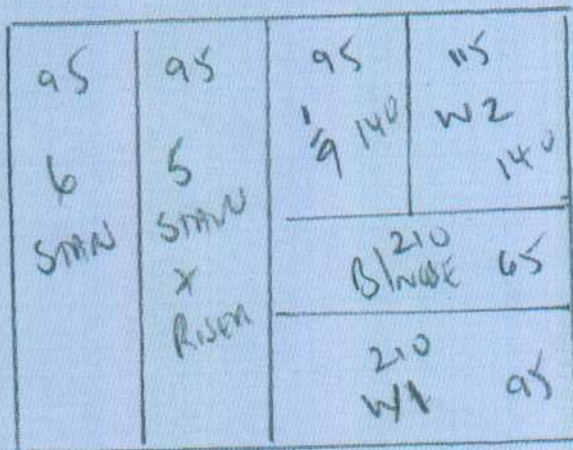 95
6
STAIR
95
5
STAIR
X
RISER
95
140
115
W2
140
210
B/NOSE 65
210
W1 95